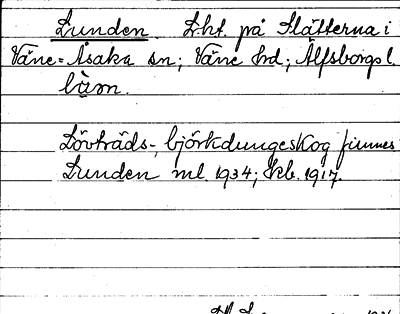 Lunden. Lht. på Slätterna i
Väne-Åsaka sn; Väne hd; Älfsborgs l.
lùm.
Lövträds-, björkdungeskog finnes
Lunden ml. 1934; Skb. 1917.